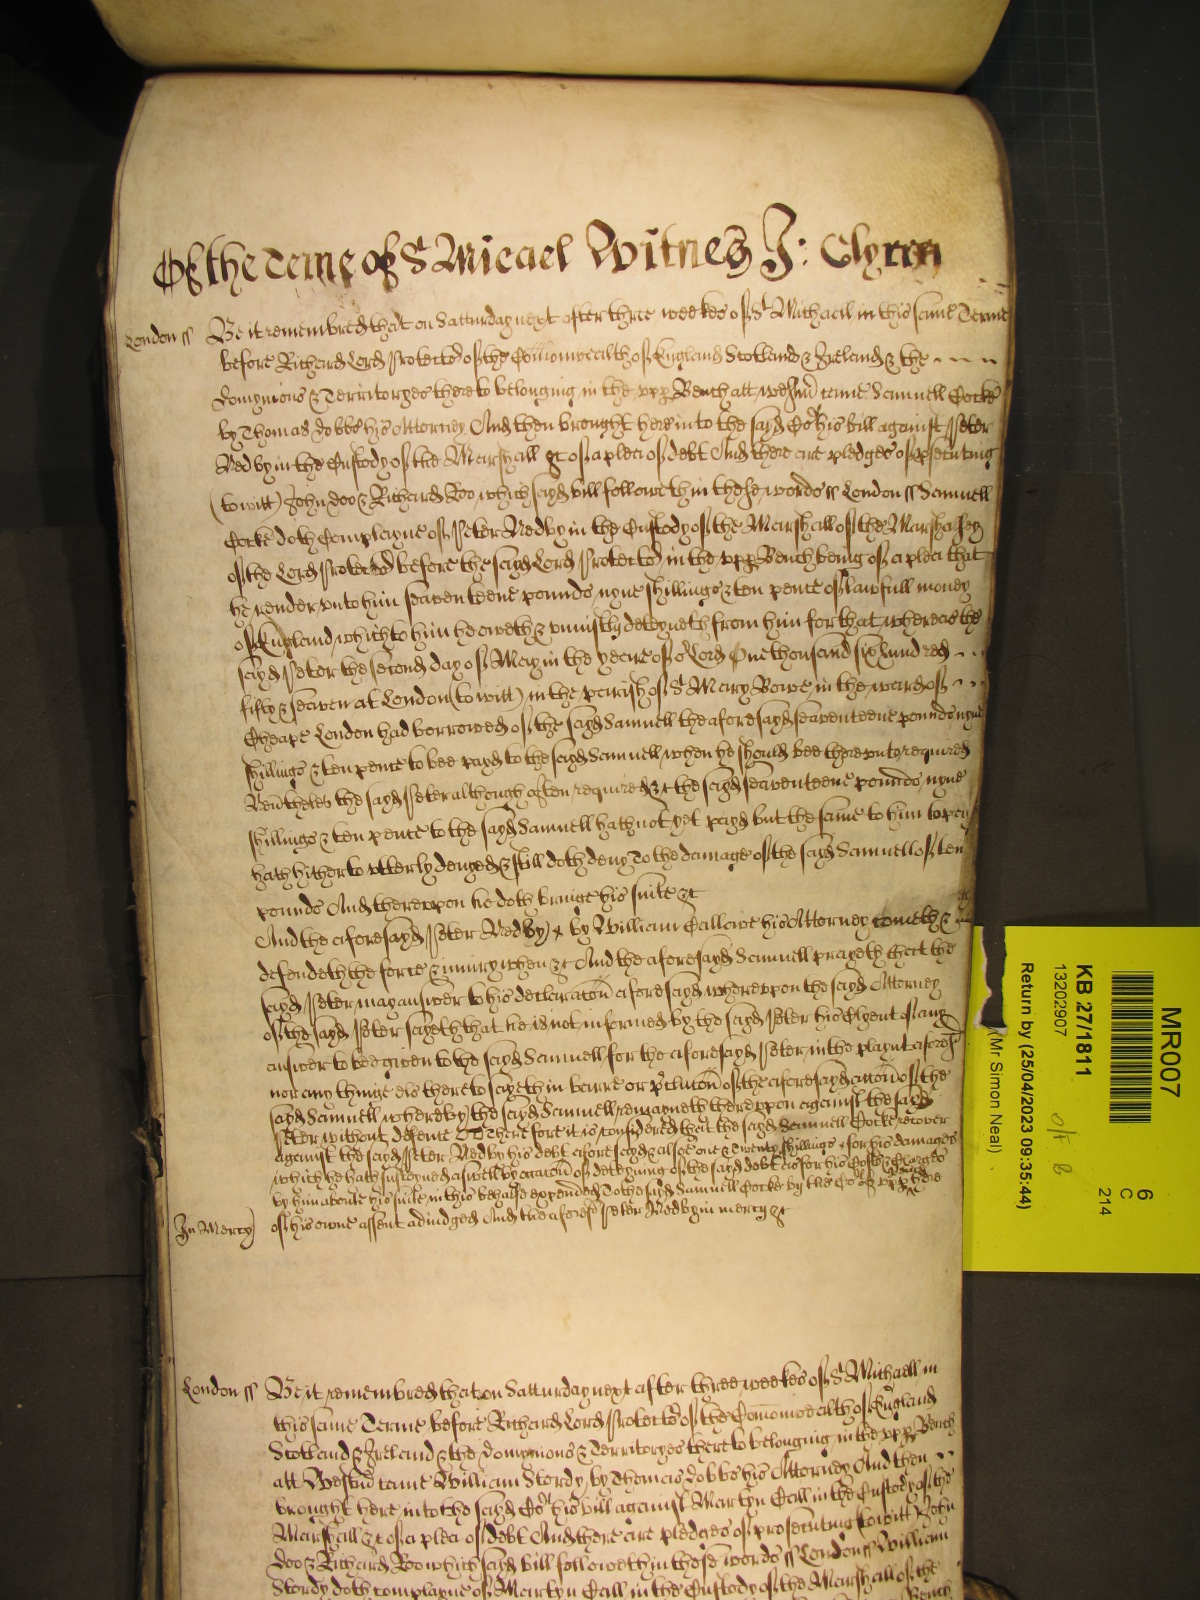 Of the Terme of St Micael Witnes J: Glynn
London ss Be it remembred that on Satturday next after three weekes of St Michaell in this same Terme
before Richard Lord Protector of the Comonwealth of England Scotland & Ireland & the
Domynions & Territoryes thereto belonging in the vpp Bench att Westmr came Samuell Cocke
by Thomas Dobbs his Attorney And then brought here into the sayd Cort his bill against Peter
Nedby in the Custody of the Marshall &c of a plea of debt And there are pledges of psecuting
(to witt) John Doo & Richard Roo which sayd bill followeth in these words ss London ss Samuell
Cocke doth Complayne of Peter Nedby in the Custody of the Marshall of the Marshalsey
of the Lord Protector before the sayd Lord Protector in the vpp Bench being of a plea that
he render vnto him seaventeene pounds nyne shillings & ten pence of lawfull money
of England which to him he oweth & vniustly deteyneth from him for that whereas the
sayd Peter the second day of May in the yeare of or Lord One thousand six hundred
fifty & seaven at London (to witt) in the parish of St Mary Bowe in the ward of
Cheape London had borrowed of the sayd Samuell the aforesayd seaventeene pounds nyne
shillings & ten pence to bee payd to the sayd Samuell when he should bee therevnto required
Neutheles the sayd Peter although often required &c the sayd seaventeene pounds nyne
shillings & ten pence to the sayd Samuell hath not yet payd but the same to him to pay
hath hitherto vtterly denyed & still doth deny To the damage of the sayd Samuell of ten
pounds And therevpon he doth bringe his suite &c
And the aforesayd Peter Nedby by William Callowe his Attorney cometh &
defendeth the force & iniury when &c And the aforesayd Samuell prayeth that the
sayd Peter may answer to his declaracon aforesayd wherevpon the sayd Attorney
of the sayd Peter sayeth that he is not informed by the sayd Peter his Clyent of any
answer to bee given to the sayd Samuell for the aforesayd Peter in the playnt aforesd
nor any thinge els thereto sayeth in barre or pclucon of the aforesayd accon of the
sayd Samuell whereby the sayd Samuell remayneth therevpon against the sayd
Peter without defence &c Therefore it is considered that the sayd Samuell Cocke recover
against the sayd Peter Nedby his debt aforesayd & alsoe one & twenty shillings for his damages
which he hath susteyned aswell by occacon of deteyning of the sayd debt as for his Costes & Charges
by him aboute his suite in this behalfe expended To the sayd Samuell Cocke by the Cort of vpp Bench here
In Mercy of his owne assent adiudged And the aforesd Peter Nedby in mercy &c
London ss Be it remembred that on Satturday next after three weekes of St Michaell in
this same Terme before Richard Lord Protector of the Comonwealth of England
Scotland & Ireland & the Domynions & Territoryes thereto belonging in the vpp Bench
att Westmr came William Stordy by Thomas Dobbs his Attorney And then
brought here into the sayd Cort his bill against Martyn Call in the Custody of the
Marshall &c of a plea of debt And there are pledges of prosecuting to witt John
Doo & Richard Roo which sayd bill followeth in these words ss London ss William
Stordy doth complayne of Martyn Call in the Custody of the Marshall of the
Bench
MR007
6
C
214
KB 27/1811
13202907
O/S B
Return by (25/04/2023 09:35:44)
(Mr Simon Neal)